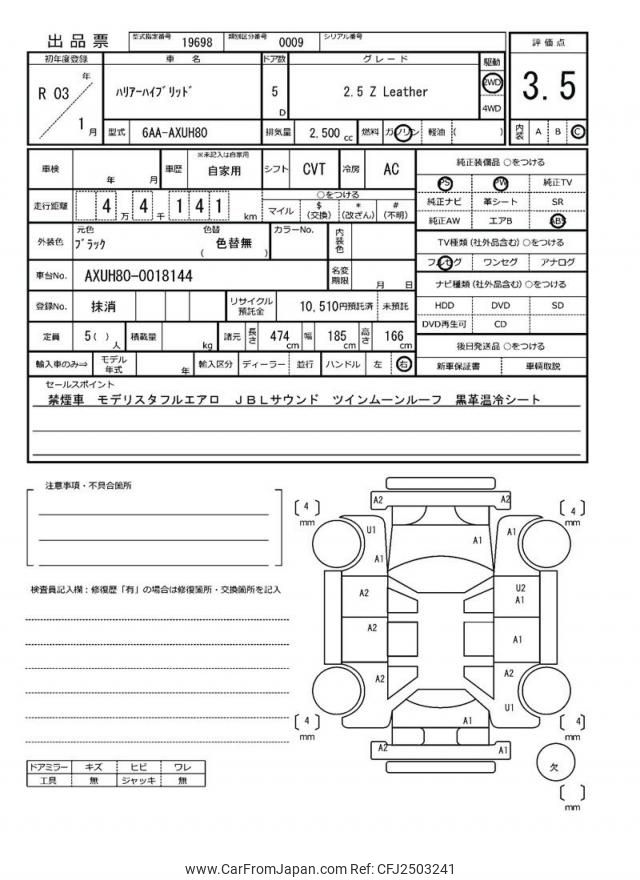 出品票 型式指定番号 19698 類別区分番号 0009 シリアル番号
評価点
3.5
内装 A B C
初年度登録 車名 ドア数 グレード 駆動
R 03 年 1 月
ﾊﾘｱｰﾊｲﾌﾞﾘｯﾄﾞ 5 D 2.5 Z Leather 2WD
4WD
型式 6AA-AXUH80 排気量 2,500 cc 燃料 ガソリン 軽油 ( )
車検 年 月 車歴 ※未記入は自家用 自家用 シフト CVT 冷房 AC
走行距離 4 万 4 千 1 4 1 km
○をつける
マイル $(交換) *(改ざん) #(不明)
外装色 元色 ﾌﾞﾗｯｸ 色替 色替無 ( ) カラーNo. 内装色
車台No. AXUH80-0018144 名変期限 月 日
登録No. 抹消 リサイクル預託金 10,510円預託済 未預託
定員 5( ) 人 積載量 kg 諸元 長さ 474 cm 幅 185 cm 高さ 166 cm
輸入車のみ⇒ モデル年式 年 輸入区分 ディーラー 並行 ハンドル 左 右
純正装備品 ○をつける
PS PW 純正TV
純正ナビ 革シート SR
純正AW エアB ABS
TV種類 (社外品含む) ○をつける
フルセグ ワンセグ アナログ
ナビ種類 (社外品含む) ○をつける
HDD DVD SD
DVD再生可 CD
後日発送品 ○をつける
新車保証書 車輌取説
セールスポイント
禁煙車 モデリスタフルエアロ JBLサウンド ツインムーンルーフ 黒革温冷シート
注意事項・不具合箇所
検査員記入欄：修復歴「有」の場合は修復箇所・交換箇所を記入
ドアミラー キズ ヒビ ワレ
工具 無 ジャッキ 無
A2 A2
[ 4 ] mm [ 4 ] mm
U1 A1 A1
A1
A2 U2
A1
A2 A1
A2 A2
U1
A1
[ 4 ] mm [ 4 ] mm
A2 A1
欠
[ ] mm
www.CarFromJapan.com Ref: CFJ2503241